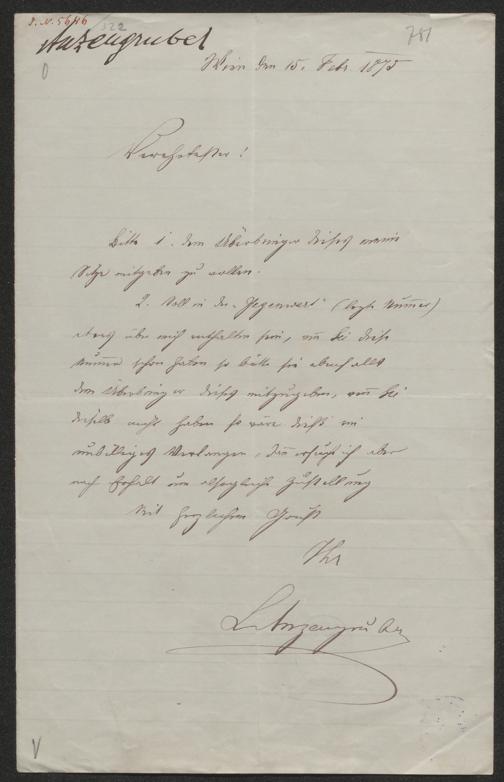 I. N. 5646
522
Anzengruber
781
Wien den 15. Febr. 1875
Verehrtester!
Bitte 1. dem Überbringer dieses meine
Sitze mitgeben zu wollen.
2. Soll in der „Gegenwart" (letzte Nummer)
etwas über mich enthalten sein, wenn Sie diese
Nummer schon haben so bitte sie ebenfalls
dem Überbringer dieses mitzugeben, wenn Sie
dieselbe nicht haben so wäre dieß ein
unbilliges Verlangen, dann ersuche ich aber
nach Erhalt um alsogleiche Zustellung
Mit herzlichem Gruß
Ihr
L. Anzengruber